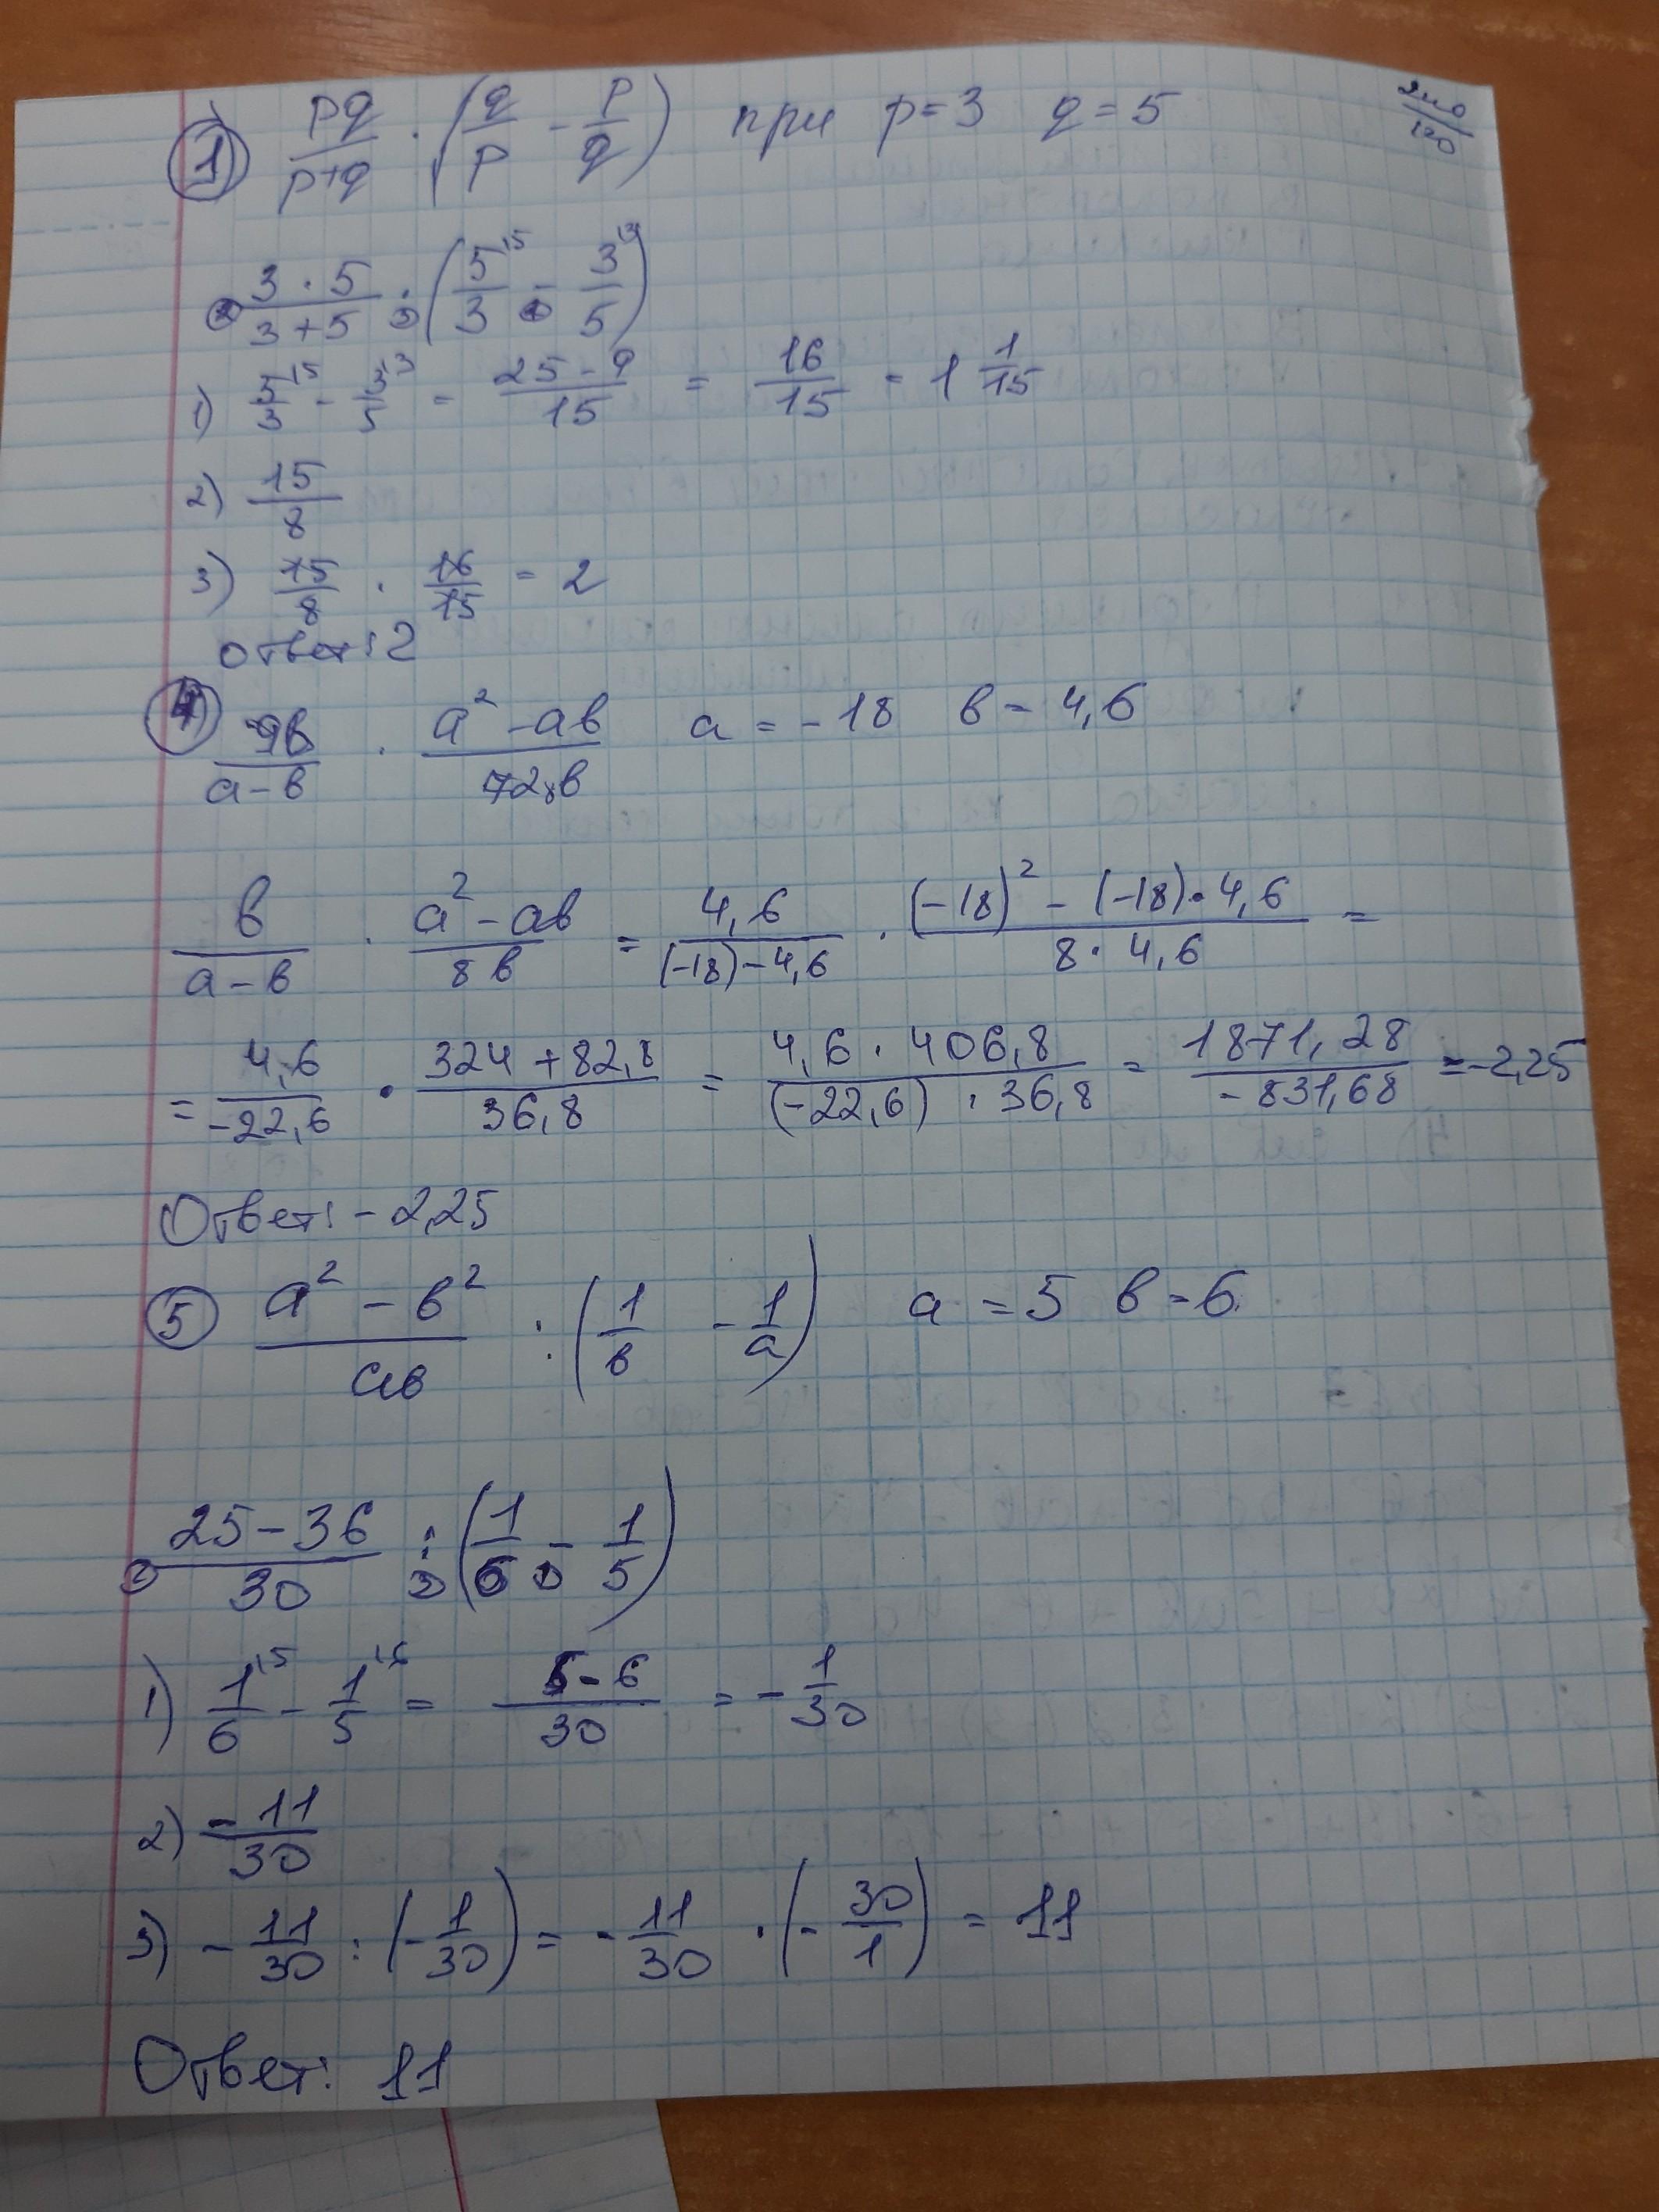 1) pq/(p+q) · (q/p - p/q) при p=3 q=5
(3·5)/(3+5) · (5/3 - 3/5)
1) 5/3 - 3/5 = (25-9)/15 = 16/15 = 1 1/15
2) 15/8
3) 15/8 · 16/15 = 2
ответ: 2
4) 9в/(а-в) · (а²-ав)/72в а = -18 в = 4,6
в/(а-в) · (а²-ав)/8в = 4,6/((-18)-4,6) · ((-18)²-(-18)·4,6)/(8·4,6) =
= 4,6/-22,6 · (324+82,8)/36,8 = (4,6·406,8)/((-22,6)·36,8) = 1871,28/-831,68 = -2,25
Ответ: -2,25
5) (а²-в²)/ав : (1/в - 1/а) а = 5 в = 6
(25-36)/30 : (1/6 - 1/5)
1) 1/6 - 1/5 = (5-6)/30 = -1/30
2) -11/30
3) -11/30 : (-1/30) = -11/30 · (-30/1) = 11
Ответ: 11